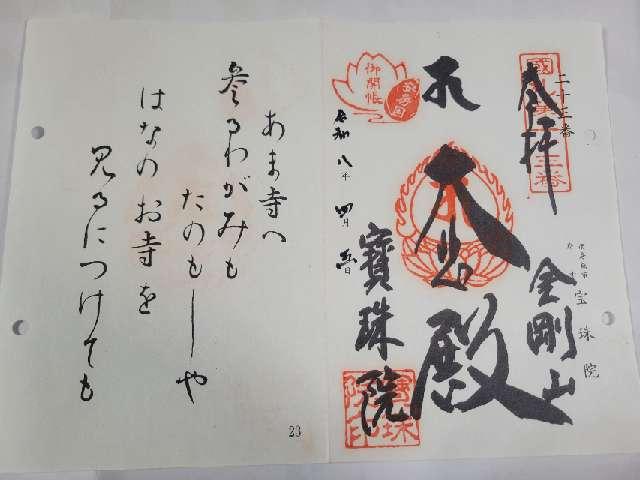 二十三番
奉拝
金剛山
宝珠院
殿
御開帳
令和八年 四月
寳珠院
あま寺へ
参るわがみも
たのもしや
はなのお寺を
見るにつけても
23